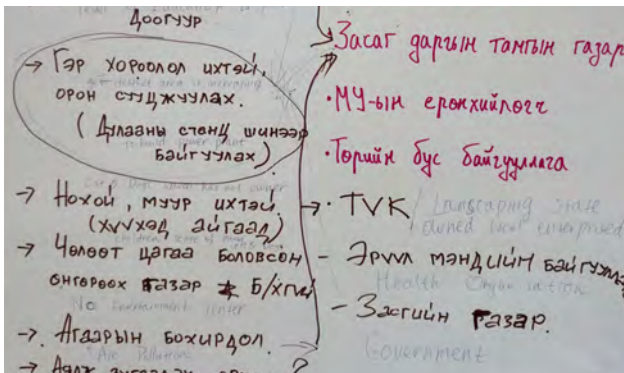 Доогуур
→ Гэр хороолол ихтэй,
орон сууцжуулах.
(Дулааны станц шинээр
to build power plant
байгуулах)
→ Нохой, муур ихтэй.
(хүүхэд айгаад)
→ Чөлөөт цагаа боловсон
өнгөрөөх газар Б/хгүй
No Entertainment center
→ Агаарын бохирдол.
Air Pollution
Засаг даргын тамгын газар
• МУ-ын ерөнхийлөгч
• Төрийн бус байгууллага
→ • TVK / Landscaping state
owned local enterprised
- Эрүүл мэндийн байгууллага
Health Organization
- Засгийн газар.
Government